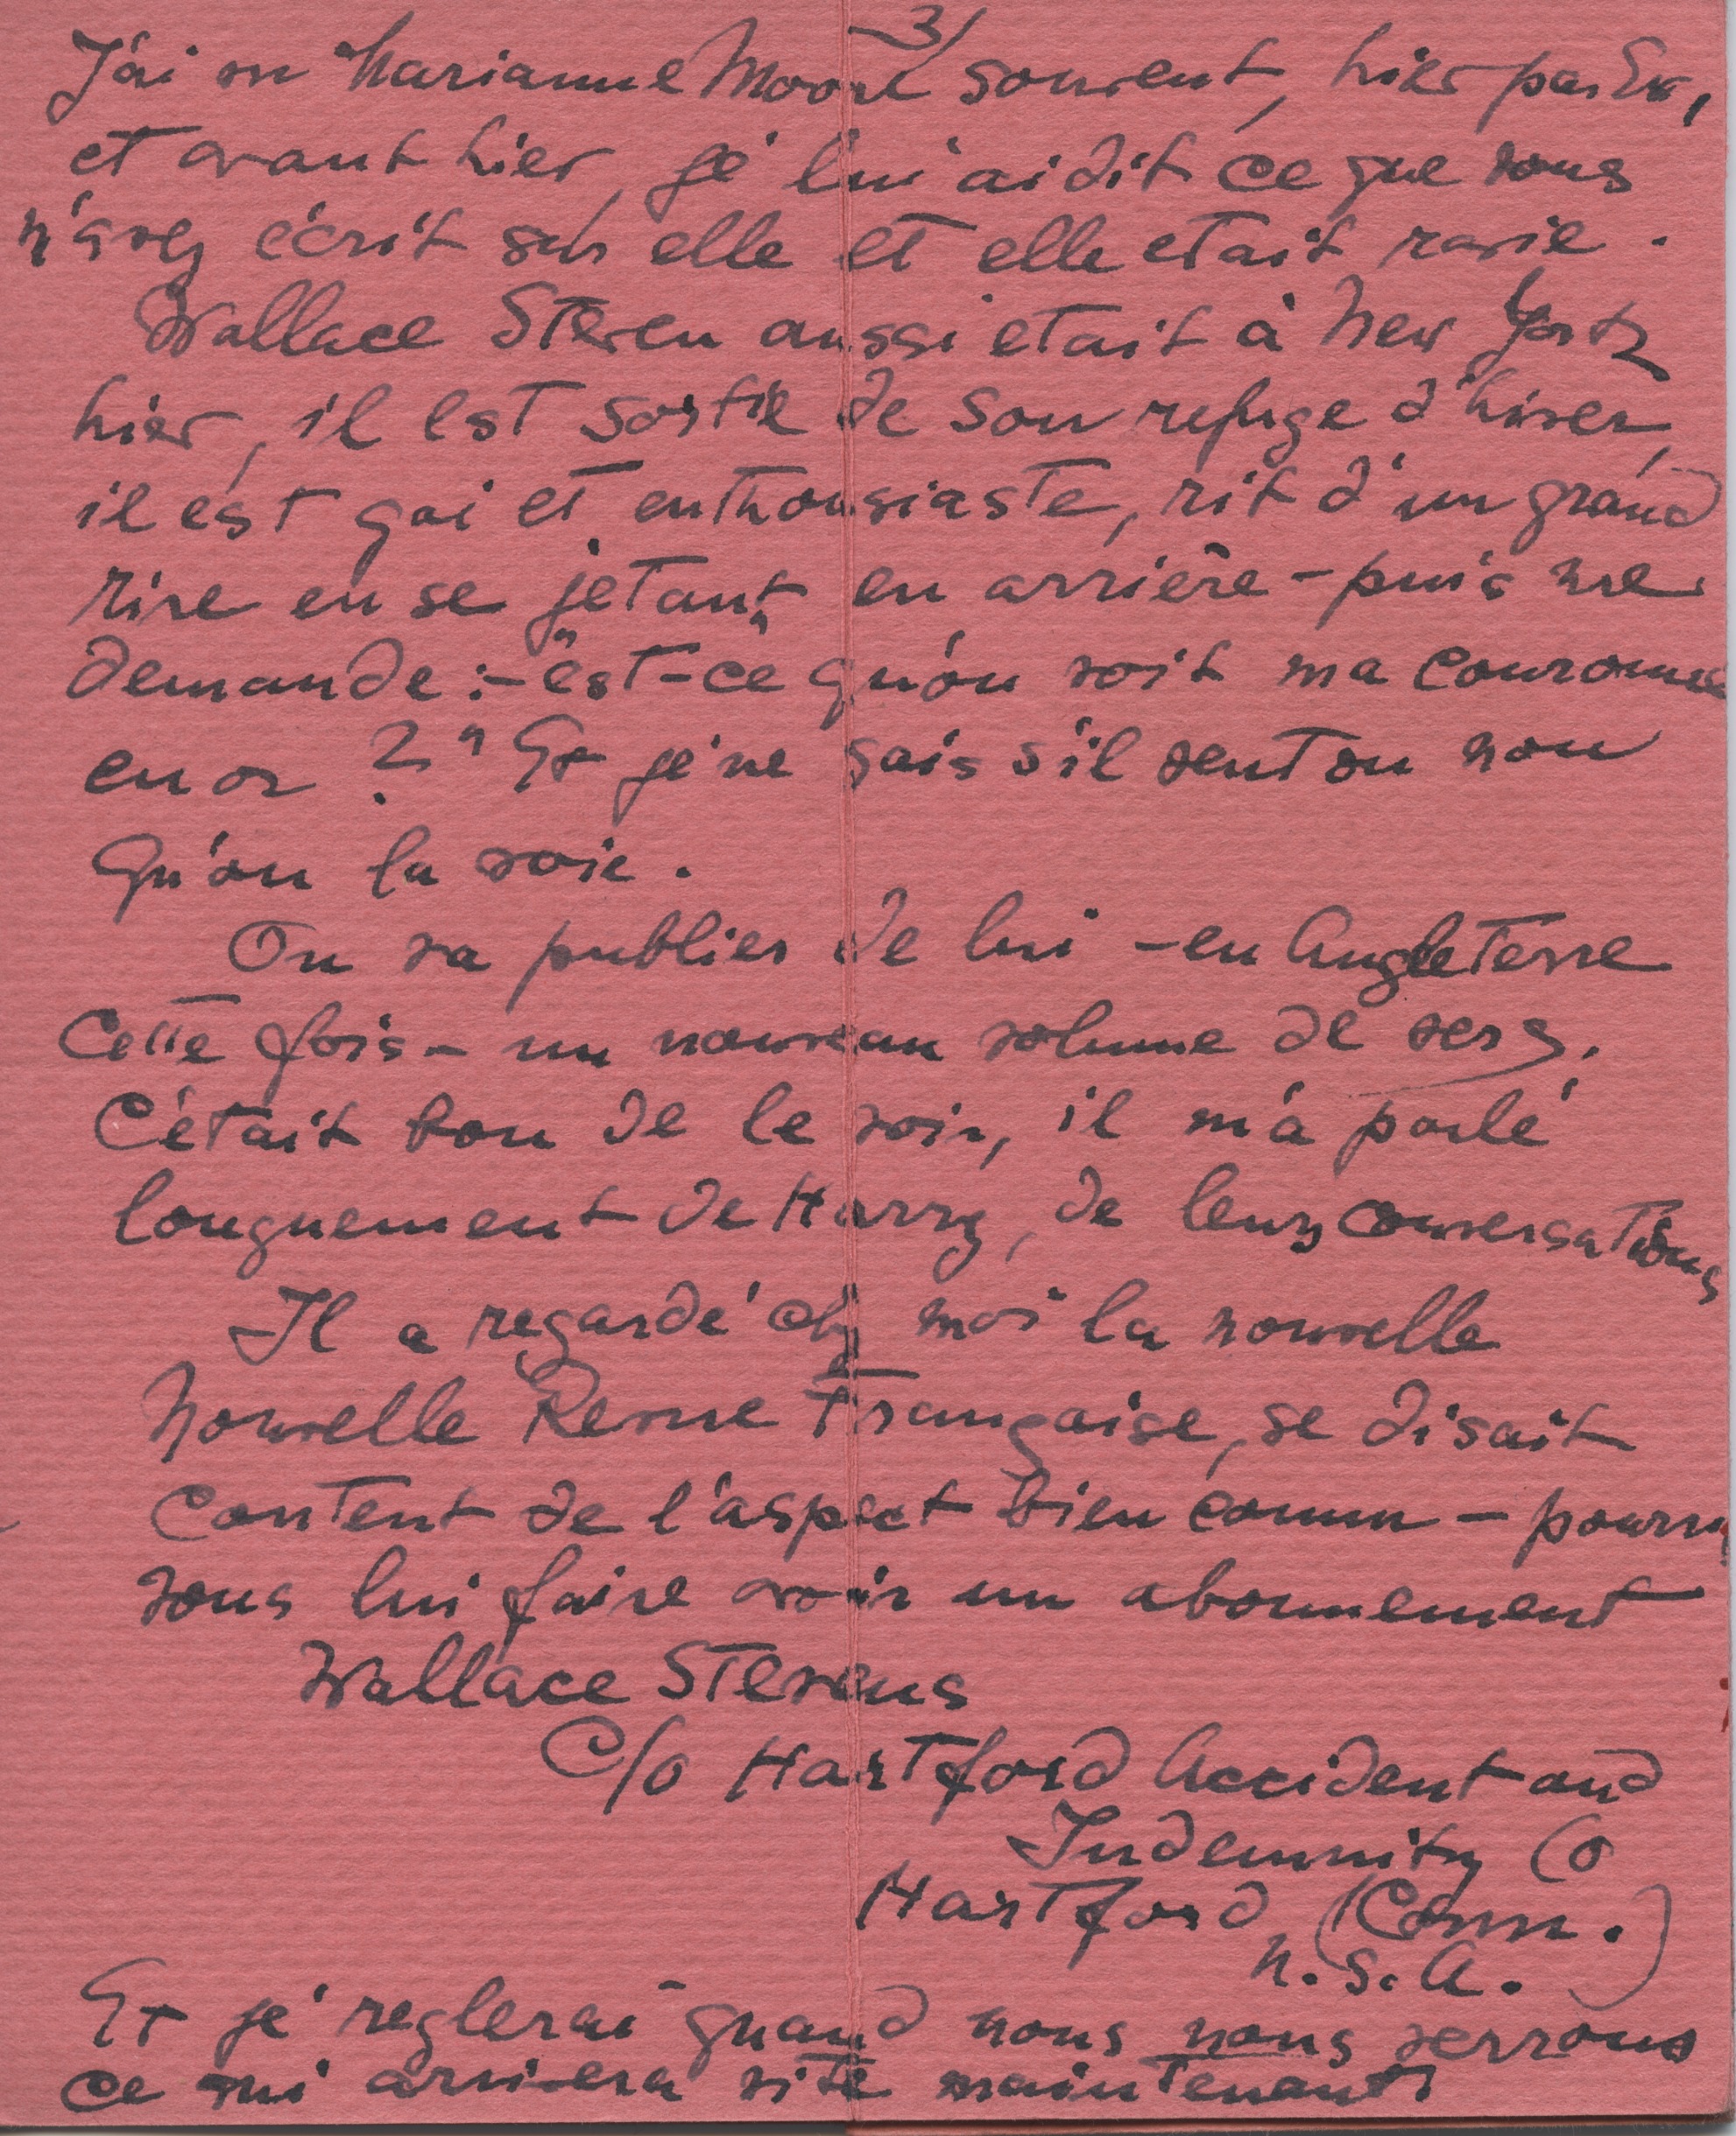 3/
J'ai vu Marianne Moore souvent, hier par Ex,
et avant hier, je lui ai dit ce que vous
m'avez écrit sur elle et elle etait ravie.
Wallace Steven aussi etait à New York
hier, il est sortie de son refuge d'hiver,
il est gai et enthousiaste, rit d'un grand
rire en se jetant en arrière – puis me
demande :– "est-ce qu'on voit ma couronne
en or ?" Et je ne sais s'il veut ou non
qu'on la voie.
On va publier de lui – en Angleterre
cette fois – un nouveau volume de vers.
C'était bon de le voir, il m'a parlé
longuement de Harry, de leurs conversations
Il a regardé chez moi la nouvelle
Nouvelle Revue Française, se disait
content de l'aspect bien connu –
vous lui faire avoir un abonnement
Wallace Stevens
c/o Hartford Accident and
Indemnity Co
Hartford (Conn.)
U.S.A.
Et je reglerai quand nous nous verrons
ce qui arrivera vite maintenant